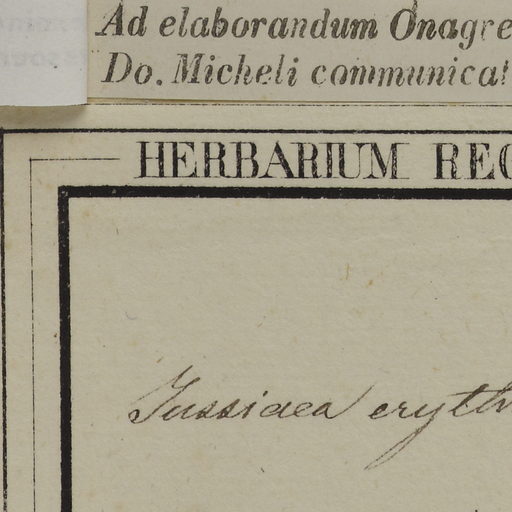 Ad elaborandum Onagre
Do. Micheli communicat
HERBARIUM REG
Jussiaea eryth